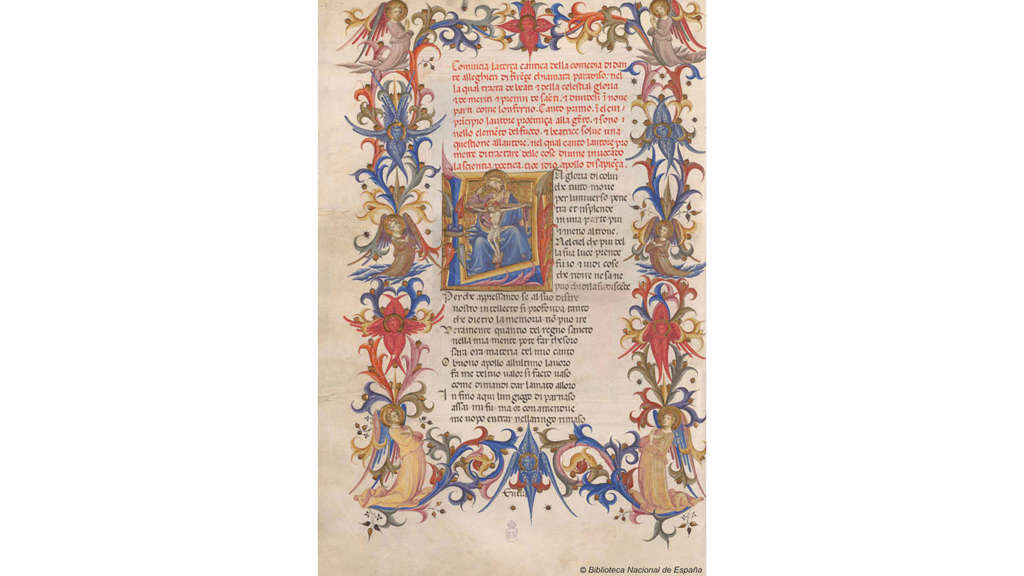 Comincia la terça cantica della comedia di dan
te alleghieri di firēçe chiamata paradiso. nel
la qual tracta de beati & della celestial gloria
& de meriti & premii de sāti. & dividesi ī nove
parti come lonferno. Canto primo. ī el cui
prīcipio lautore proemiça alla
nello elemēto del fuoco. & beatrice solve una
questione allautore. nel qual canto lautore pro
mette di tractare delle cose divine invocādo
la scientia poetica. cioe idio apollo di sapiēça.
LA gloria di colui
che tutto move
per luniverso pene
tra et risplende
in una parte piu
& meno altrove.
Nel ciel che piu del
la sua luce prende
fu io & vidi cose
che ridire ne sa ne
puo chi di lassu discēde
Perche appressando se al suo disire
nostro intellecto si profonda tanto
che dietro la memoria nō puo ire
Veramente quantio del regno sancto
nella mia mente pote far thesoro
sara ora materia del mio canto
O buono apollo allultimo lavoro
fa me del tuo valor si facto vaso
come dimandi dar lamato alloro
In fino aqui lun giogo di parnaso
assai mi fu. ma or con amendue
me uopo entrar nellaringo rimaso
© Biblioteca Nacional de España